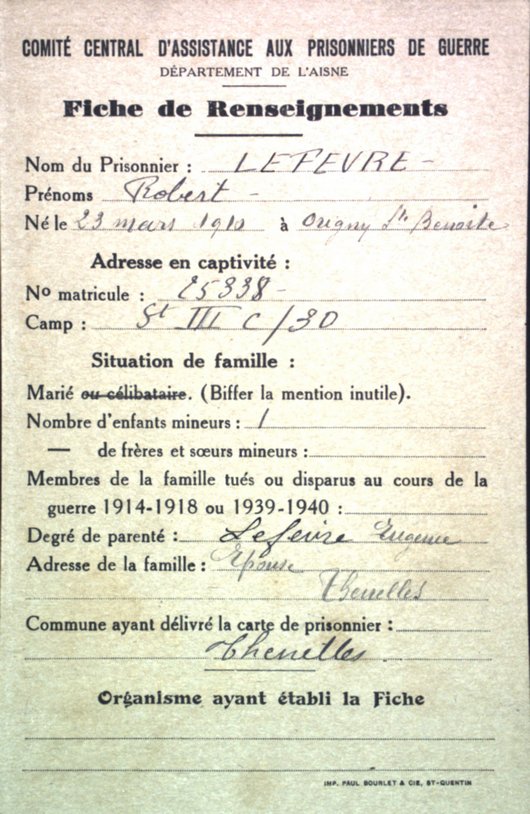 COMITÉ CENTRAL D'ASSISTANCE AUX PRISONNIERS DE GUERRE
DÉPARTEMENT DE L'AISNE
Fiche de Renseignements
Nom du Prisonnier : LEFEVRE -
Prénoms Robert -
Né le 23 mars 1910 à Origny Ste Benoite
Adresse en captivité :
No matricule : 25338 -
Camp : St III C/30
Situation de famille :
Marié ou célibataire. (Biffer la mention inutile).
Nombre d'enfants mineurs : 1
— de frères et sœurs mineurs :
Membres de la famille tués ou disparus au cours de la
guerre 1914-1918 ou 1939-1940 :
Degré de parenté : Lefevre Eugene
Adresse de la famille : Epouse
Thenelles
Commune ayant délivré la carte de prisonnier :
Thenelles
Organisme ayant établi la Fiche
IMP. PAUL BOURLET & CIE, ST-QUENTIN